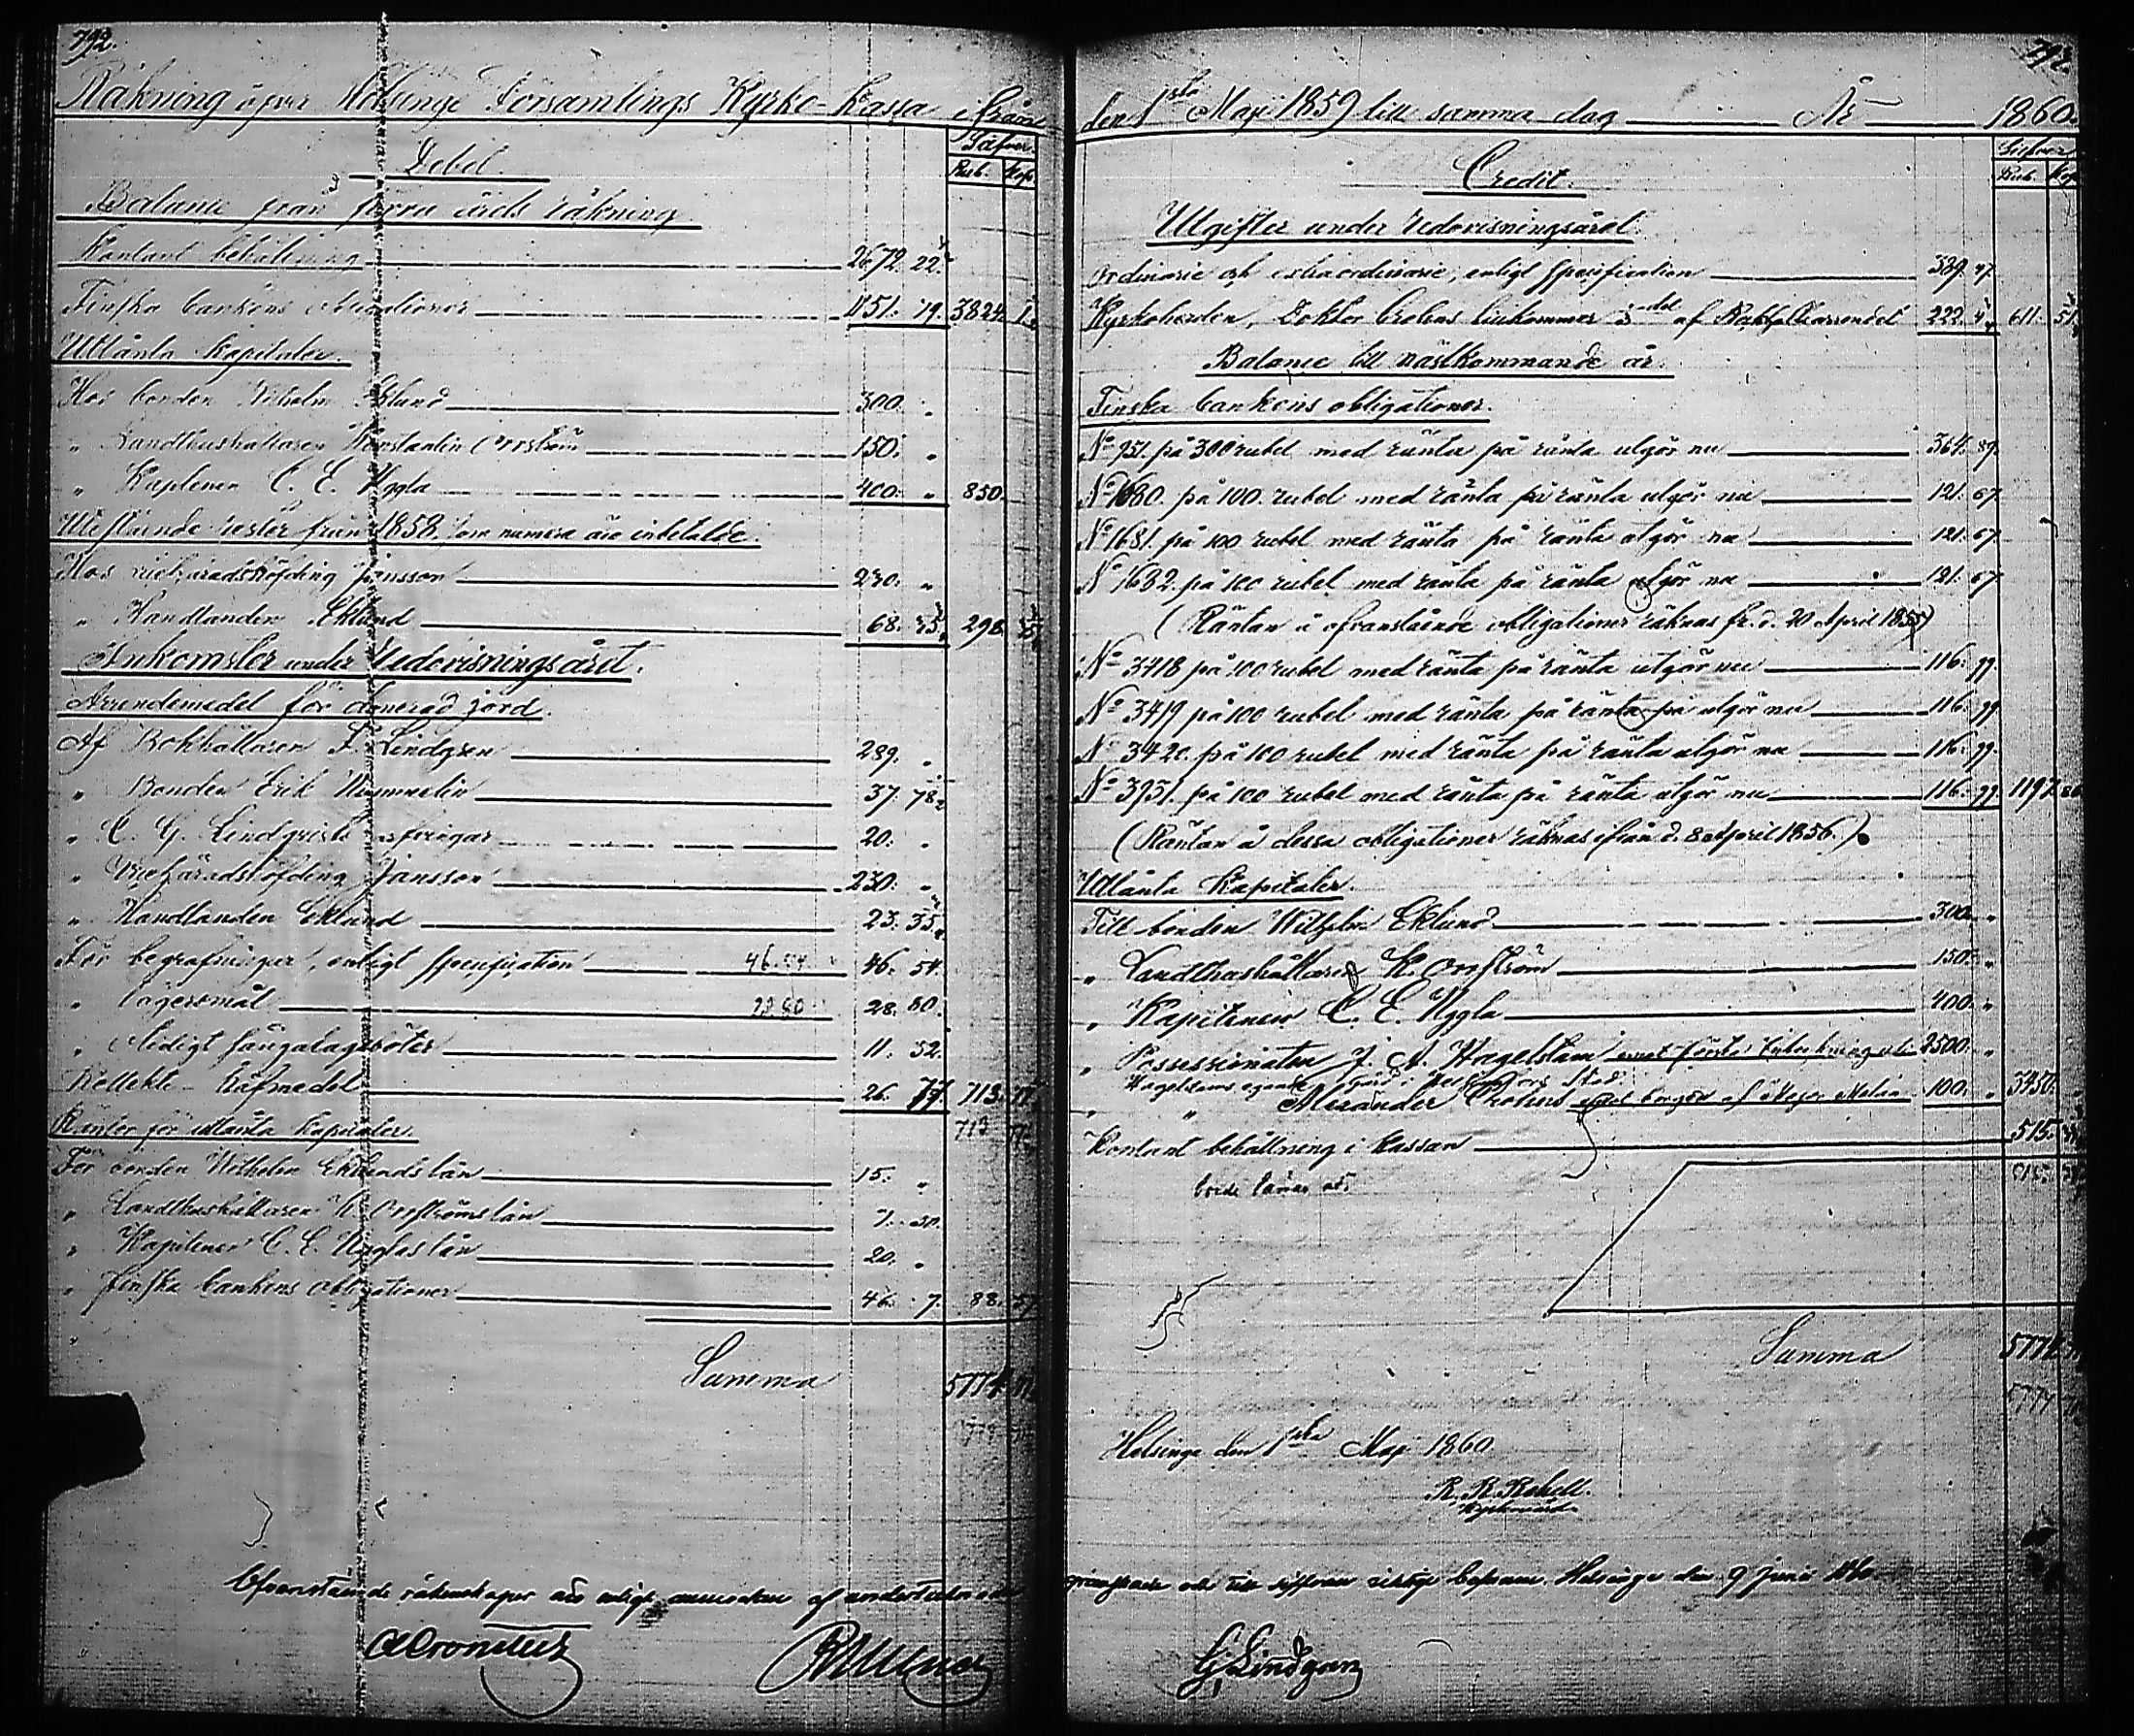 792.
Räkning öfver Helsinge Församlings Kyrko-Kassa ifrån
Silfver.
Debet.
Rub. Kop.
Balance från förra årets räkning
Kontant behållning 2672. 22
Finska bankens obligationer 1151. 79. 3824. 1
Utlånta Kapitaler.
Hos bonden Wilhelm Eklund 300. "
" Landthushållaren Konstantin Orrström 150. "
" Kaptenen C. E. Uggla 400. " 850.
Utestående rester från 1858, som numera äro inbetalde.
Hos viceharadshöfding Jansson 230. "
" Handlanden Eklund 68. 298.
Inkomster under Redovisningsåret.
Arrendemedel för donerad jord.
Af Bokhållaren F. Lindgren 289. "
" Bonden Erik 37. 78
" C. G. Lindqvists 20. "
" Viceharadshöfding Jansson 230. "
" Handlanden Eklund 23. 35
För begrafningar, enligt specification 46.54 46. 54.
" lägersmål 28.80 28. 80.
" 11. 52.
Kollekt- Håfmedel 26. 77. 713. 77.
713 77.
Räntor för utlånta Kapitaler.
För bonden Wilhelm Eklunds lån 15. "
" Landthushållaren K. Orrströms lån 7. 50.
" Kapitenen C. E. Ugglas lån 20. "
" finska bankens obligationer 46. 7. 88. 57.
Summa 5774.
Ofvanstående räkenskaper äro enligt af undertecknade
792.
den 1sta Maji 1859 till samma dag År 1860.
Silfver
Credit.
Rub. Kop.
Utgifter under Redovisningsåret.
Ordinarie och extraordinarie, enligt specification 389. 47.
Kyrkoherden, Doktor Crohns tillkommer af 222. 4 611. 51
Balance till nästkommande år.
Finska bankens obligationer.
No 951. på 300 rubel med ränta på ränta utgör nu 364. 89.
No 1680. på 100. rubel med ränta på ränta utgör nu 121. 67.
No 1681. på 100 rubel med ränta på ränta utgör nu 121. 67.
No 1682. på 100 rubel med ränta på ränta utgör nu 121. 67.
(Räntan å ofvanstående obligationer räknas fr. d. 20 April 1855)
No 3418 på 100 rubel med ränta på ränta utgör nu 116. 99.
No 3419 på 100 rubel med ränta på ränta på utgör nu 116. 99.
No 3420. på 100 rubel med ränta på ränta utgör nu 116. 99.
No 3951. på 100 rubel med ränta på ränta utgör nu 116. 99. 1197. 86
(Räntan å dessa obligationer räknas ifrån d. 8 April 1856.)
Utlånta Kapitaler.
Till bonden Wilhelm Eklund 300. "
" Landthushållaren K. Orrström 150. "
" Kapitenen C. E. Uggla 400. "
" Possessionaten J. A. Hagelstam emot första 2500. "
Hagelstams egande gård i Helsingfors Stad.
" Alexander Crohns emot borgen af Major Melan 100. " 3450.
Kontant behållning i kassan 515.
borde lånas ut.
515.
Summa 5774.
5774
Helsinge den 1sta Maji 1860
R. R. Rehell.
Kyrkovärd.
granskade och till siffran riktige befunne. Helsinge den 9 Junii 1860.
G Lindgren